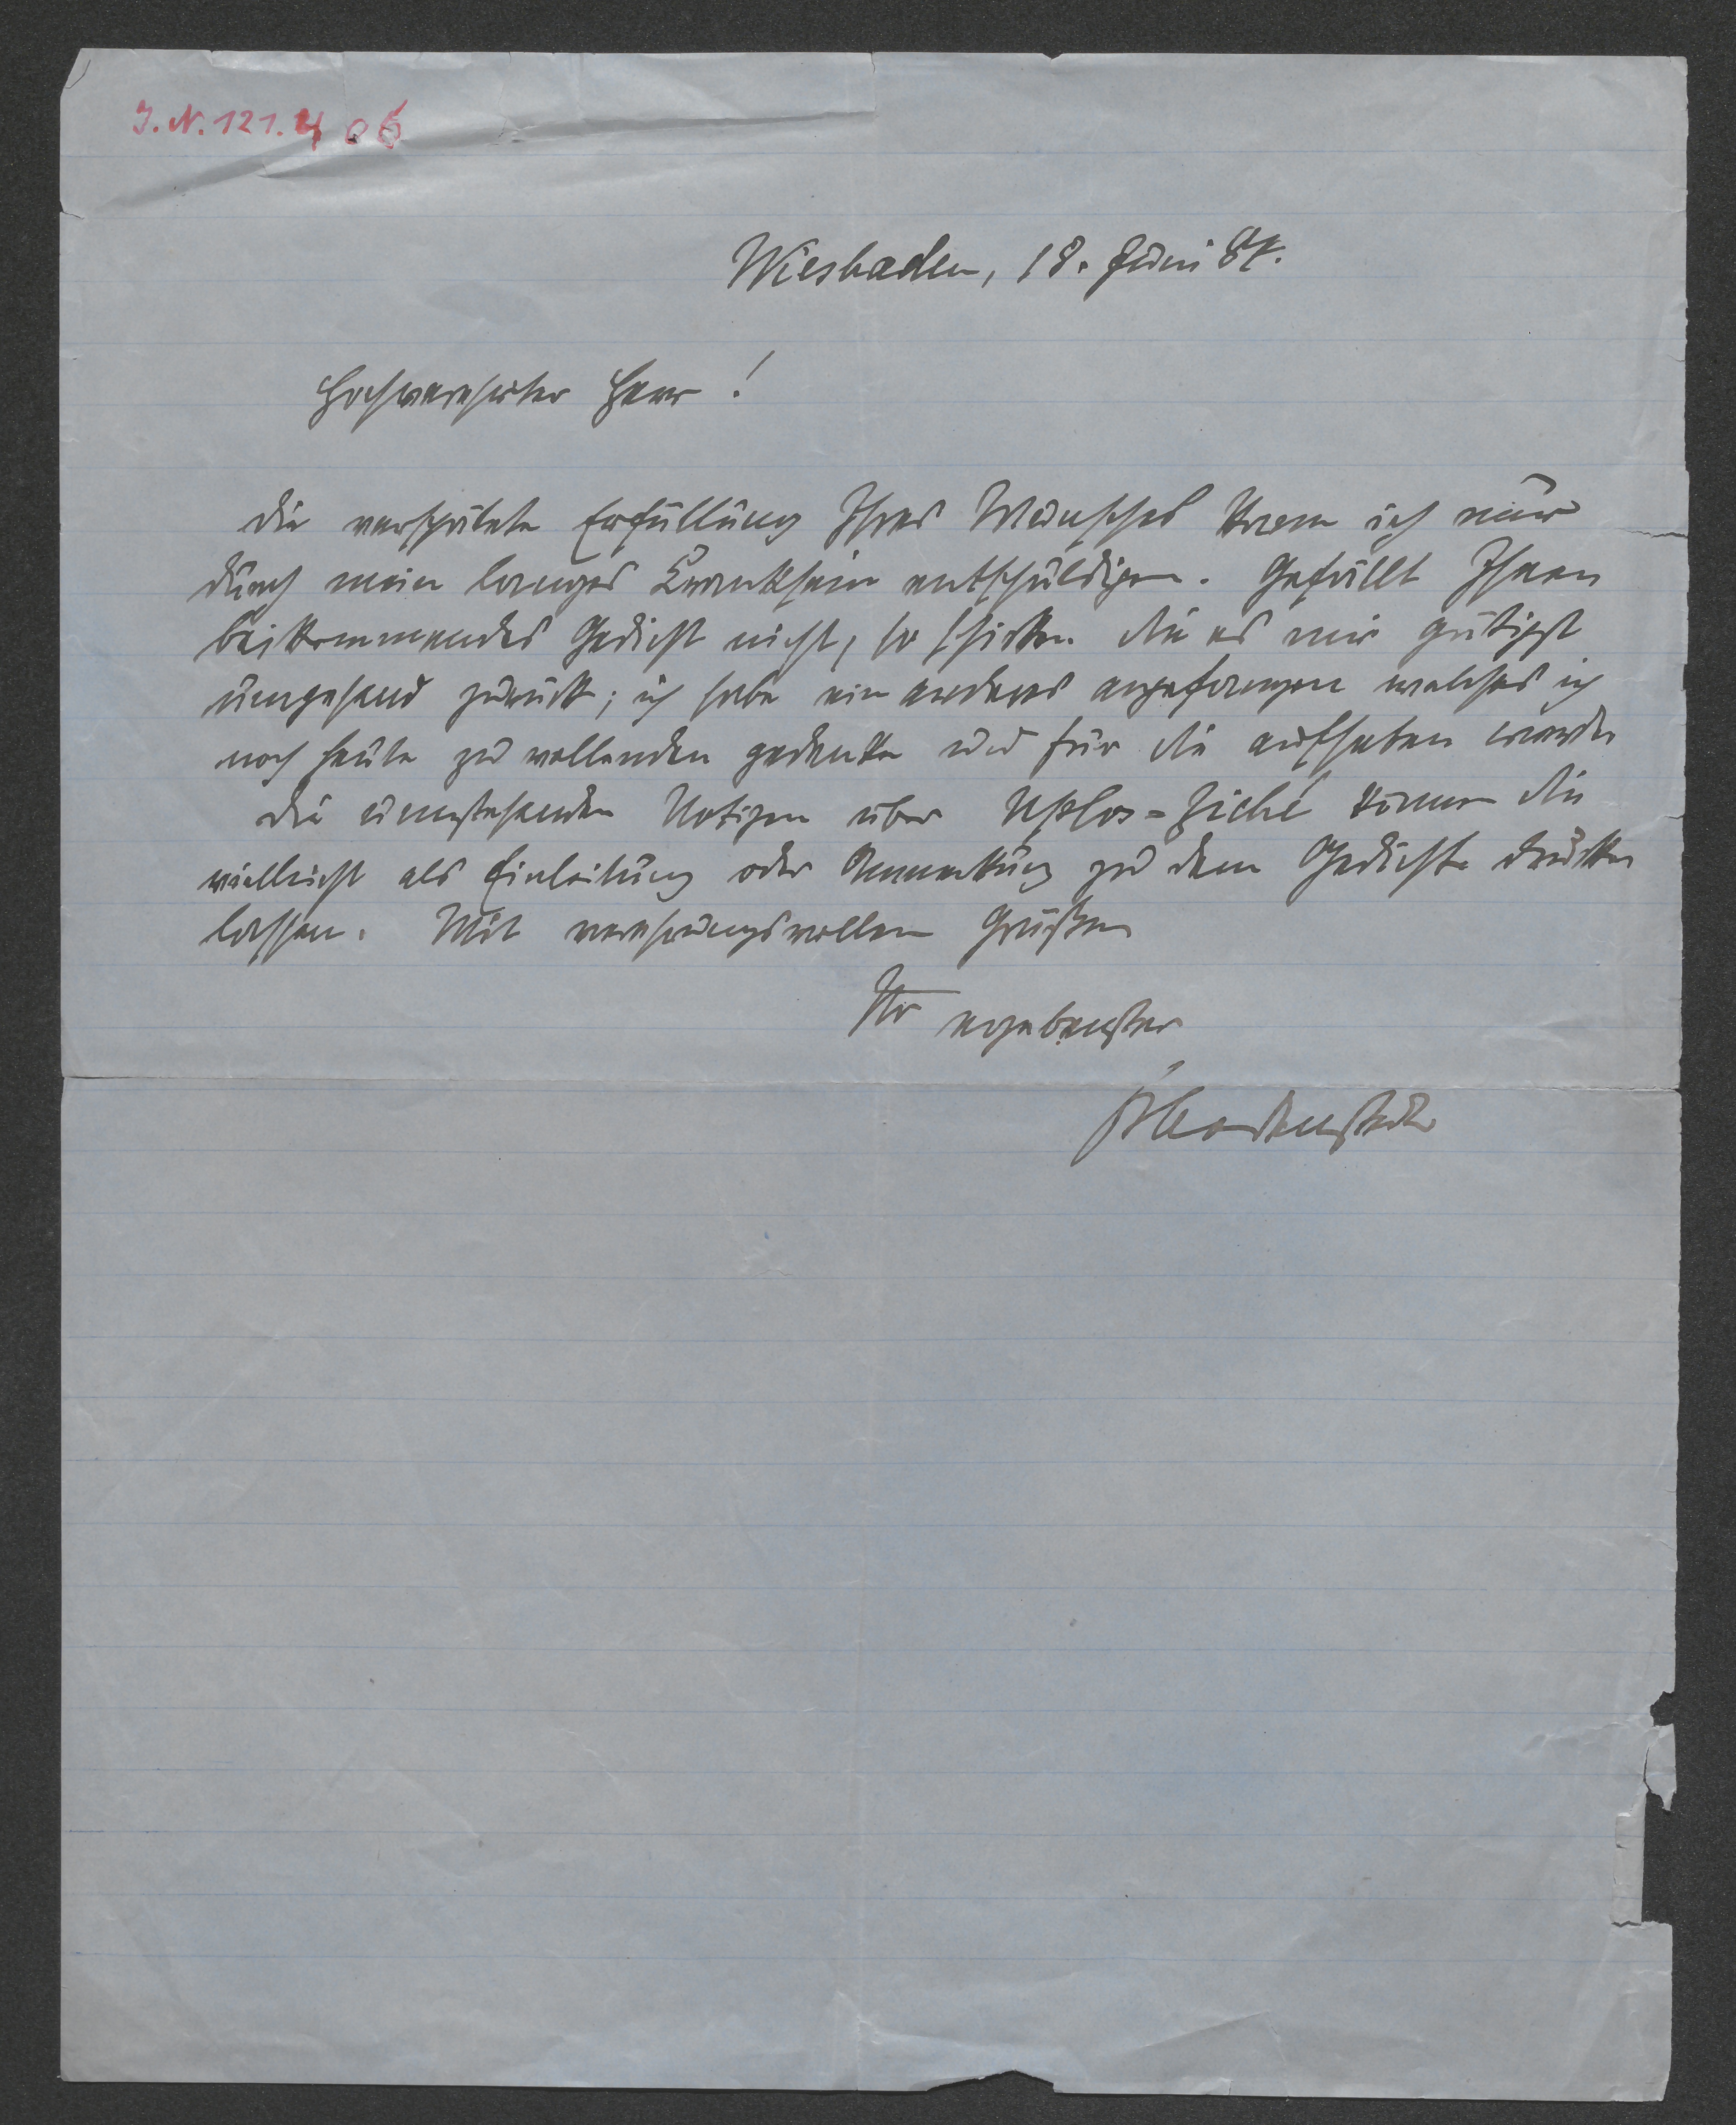 J. N. 121.406
Wiesbaden, 18. Juni 84.
Hochverehrter Herr!
Die verspätete Erfüllung Ihres Wunsches kann ich nur
durch mein langes Kranksein entschuldigen. Gefällt Ihnen
beikommendes Gedicht nicht, so schicken Sie es mir gütigst
umgehend zurück; ich habe ein anderes angefangen welches ich
noch heute zu vollenden gedenke und für Sie aufheben werde
Die umstehenden Notizen über können Sie
vielleicht als Einleitung oder Anmerkung zu dem Gedichte drucken
lassen. Mit verehrungsvollen Grüßen
Ihr ergebenster
FBodenstedt